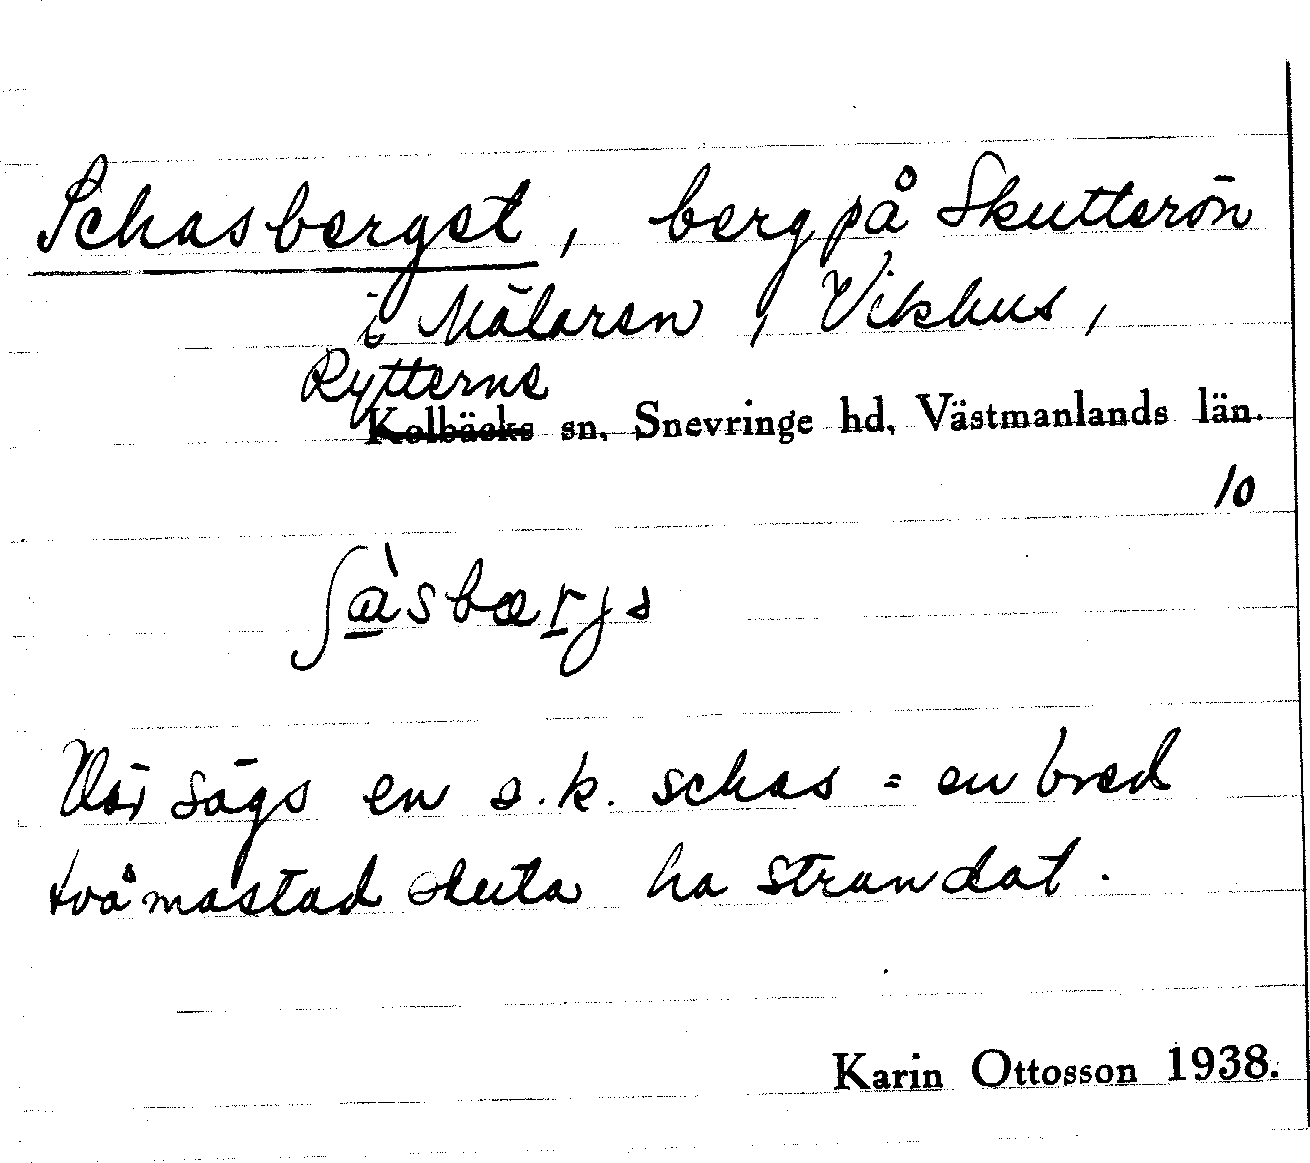 Schasberget, berg på Skutterön
i Mälaren, Vikhus,
Rytterne
Kolbäcks sn, Snevringe hd, Västmanlands län.
10
ʃà̱sbær̲jə
Där sägs en s.k. schas = en bred
tvåmastad skuta ha strandat.
Karin Ottosson 1938.